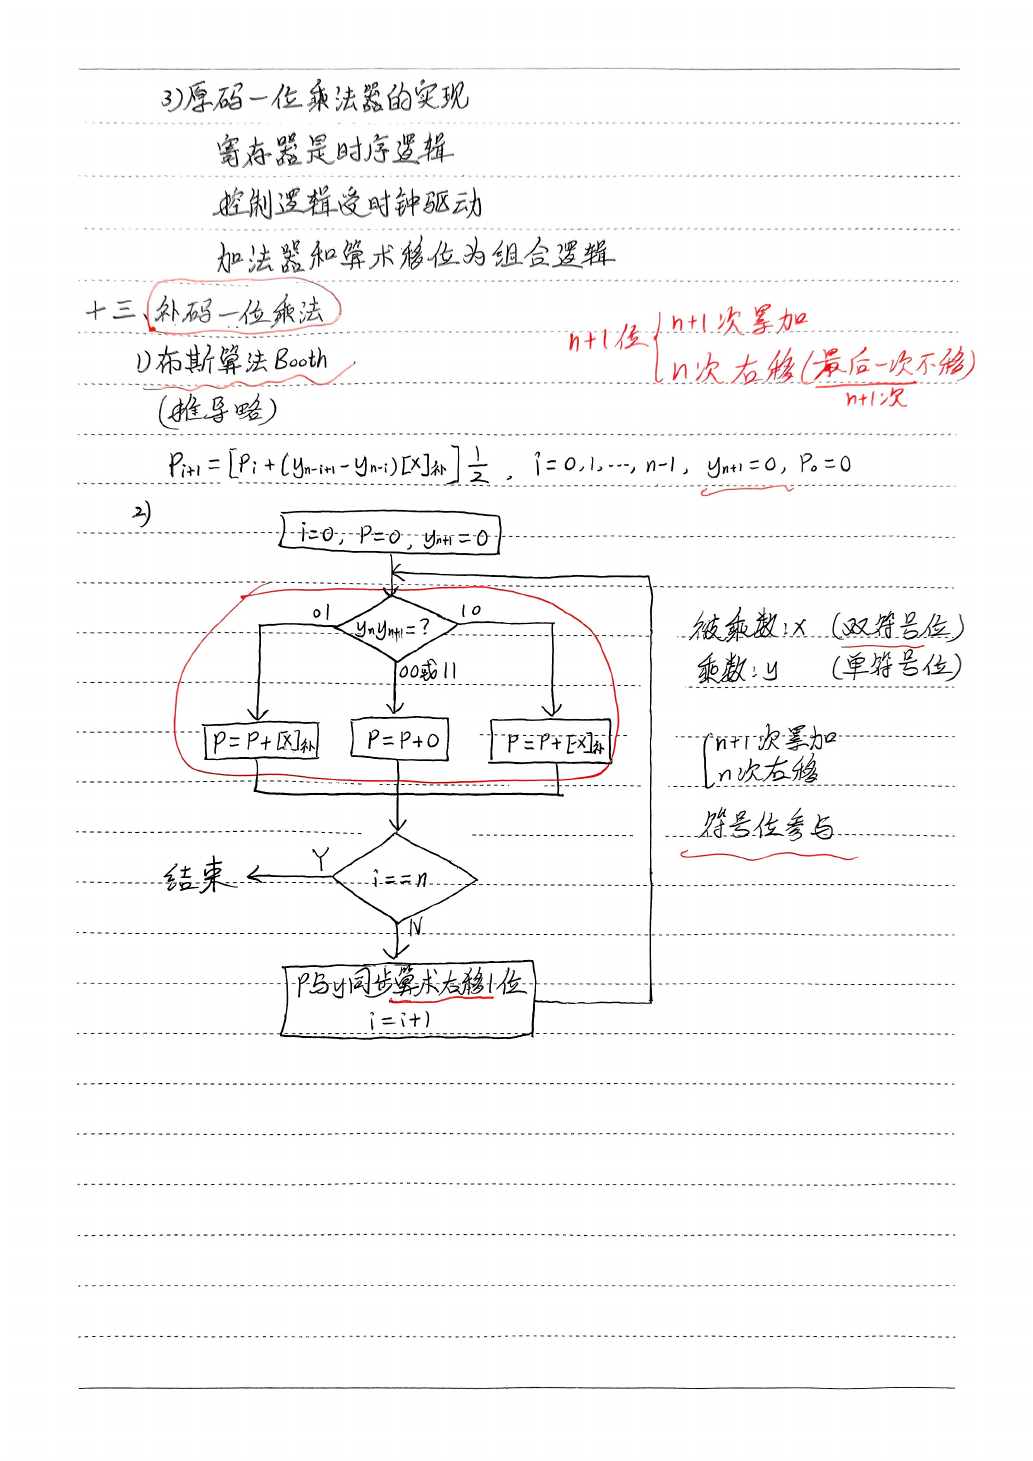 3)原码一位乘法器的实现
寄存器是时序逻辑
控制逻辑受时钟驱动
加法器和算术移位为组合逻辑
十三、补码一位乘法
1)布斯算法Booth
(推导略)
n+1位{n+1次累加
n次右移(最后一次不移)
n+1次
Pi+1=[Pi+(yn-i+1-yn-i)[X]补]1/2, i=0,1,…,n-1, yn+1=0, P0=0
2)
i=0, P=0, yn+1=0
01
ynyn+1=?
10
00或11
P=P+[X]补
P=P+0
P=P+[-X]补
i==n
Y
结束
N
P与y同步算术右移1位
i=i+1
被乘数:x (双符号位)
乘数:y (单符号位)
{n+1次累加
n次右移
符号位参与